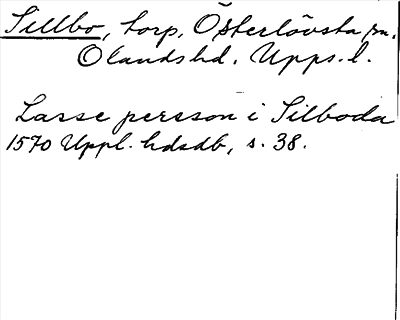 Sillbo, torp, Österlövsta sn.
Olands hd. Upps. l.
Lasse persson i Silboda
1570 Uppl. hdsdb, s. 38.